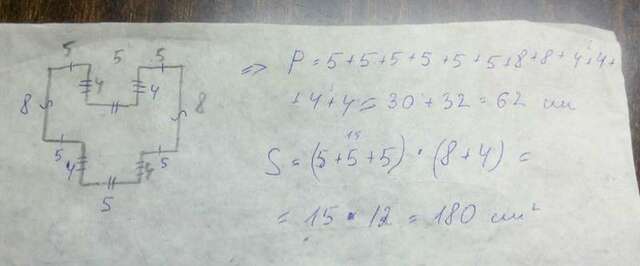 5 5 5
4 4
8 8
5 5
4 4
5
=> P = 5+5+5+5+5+5+8+8+4+4+
+4+4 = 30+32 = 62 см
15
S = (5+5+5) · (8+4) =
= 15 · 12 = 180 см²